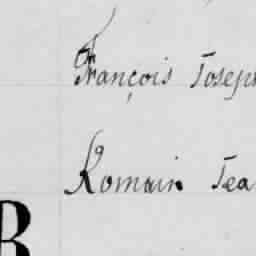 François Joseph
Romain Jea
B